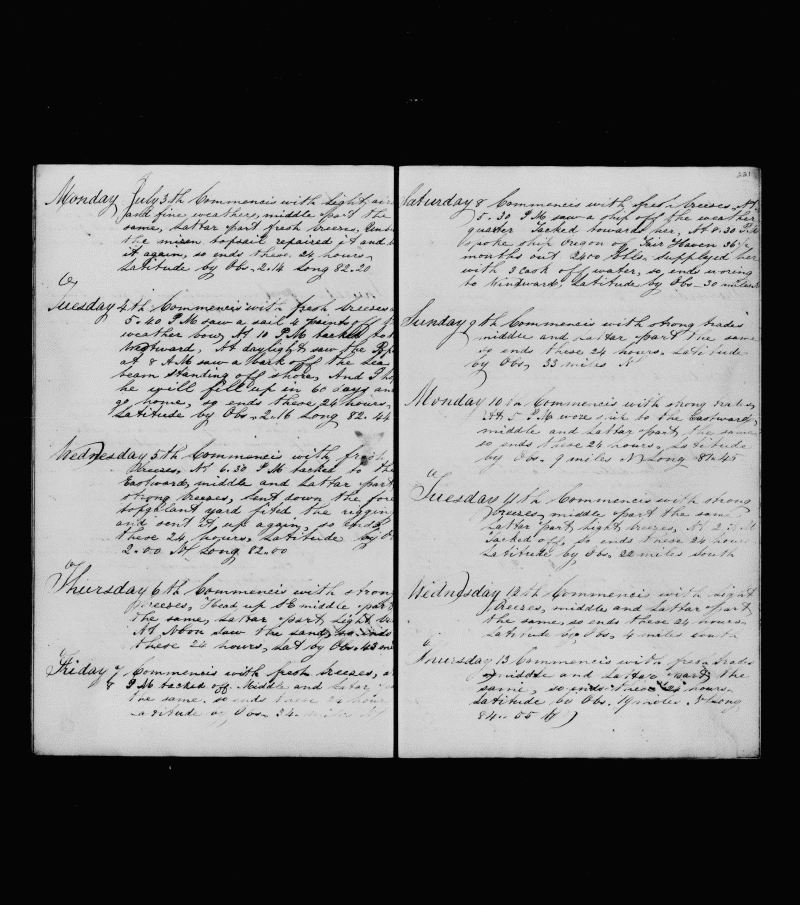 Monday July 3th Commencis with light air
and fine weathers, middle part the
same, Lattar part fresh breezes,
the mizen topsail repaired it and
it again, so ends these 24 hours
Latitude by Obs. 2.14 Long 82.20
Tuesday 4th Commencis with fresh breezes
5.40 P M saw a sail 4 points off
weather bow, At 10 P M tacked to
Westward, At daylight saw the
at 8 A M saw a bark off the Lee
beam standing off shore, And
he will fill up in 60 days an
go home, so ends these 24 hours,
Latitude by Obs. 2.16 Long 82.44
Wednesday 5th Commencis with fresh
Breezes, At 6.30 P M tacked to the
Eastward, middle and Lattar part
strong breezes, sent down the fore
topgalant yard fited the rigging
and sent it up again, so ends
these 24 hours, Latitude by
2.00 N Long 82.00
Thursday 6th Commencis with strong
breezes, Head up SE middle part
the same, Lattar part, Light
At Noon saw the land, so ends
these 24 hours, Lat by Obs. 43
Friday 7 Commencis with fresh breezes,
8 P M tacked off. Middle and Latar
the same. so ends these 24 hours
Latitude by Obs. 34 miles N
221
Saturday 8 Commencis with fresh breezes, At
5.30 P M saw a ship off the weather
quarter Tacked towards her, At 6.30 P M
spoke ship Oregon of Fair Haven 36
months out 2400 bbls. supplyed her
with 3 cask of water, so ends woring
to Windward, Latitude by Obs. 30 miles
Sunday 9th Commencis with strong trades
middle and Lattar part the same
so ends these 24 hours. Latitude
by Obs. 33 miles N
Monday 10th Commencis with strong trades,
At 5 P M wore ship to the Eastward,
middle and Lattar part the same
so ends these 24 hours, Latitude
by Obs. 9 miles N Long 81.45
Tuesday 11th Commencis with strong
breezes, middle part the same
Lattar part Light breezes, At 2 P M
Tacked off, so ends these 24 hours
Latitude by Obs. 22 miles South
Wednesday 12th Commencis with Light
Breezes, middle and Lattar part
the same, so ends these 24 hours
Latitude by Obs. 4 miles south
Thursday 13 Commencis with fresh trades
middle and Lattar part the
same, so ends these 24 hours.
Latitude by Obs. 19 miles N Long
84..55 W